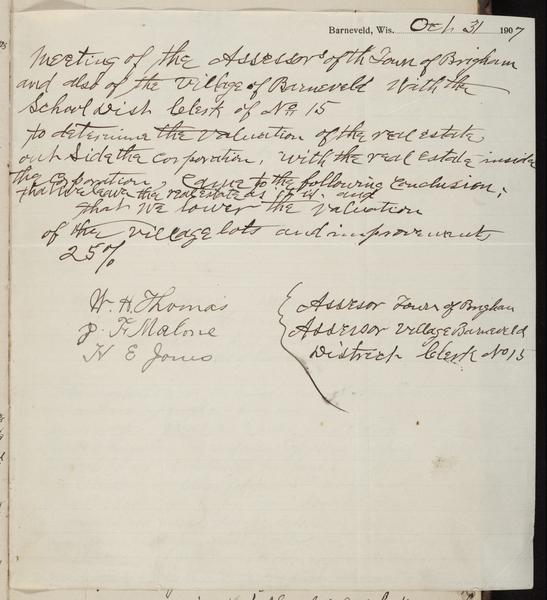 Barneveld, Wis. Oct 31 1907
Meeting of the Assessors of th Town of Brigham
and also of the Village of Barneveld With the
School Dist Clerk of No 15
to determine the Valuation of the real estate
out Side the Corporation, with the real Estate inside
the Corporation, Came to the following Conclusion;
that we leave the real estate as it is. and
that we lower the Valuation
of the Village lots and improvements
25%
W. H. Thomas Assesor Town of Brigham
J. H Malone Assessor Village Barneveld
H E Jones District Clerk No 15